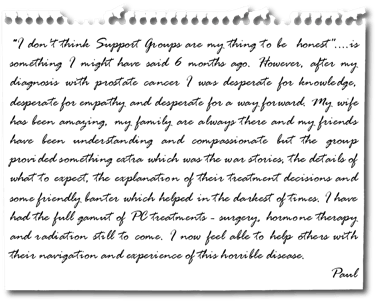 "I don't think Support Groups are my thing to be honest"....is
something I might have said 6 months ago. However, after my
diagnosis with prostate cancer I was desperate for knowledge,
desperate for empathy and desperate for a way forward. My wife
has been amazing, my family are always there and my friends
have been understanding and compassionate but the group
provided something extra which was the war stories, the details of
what to expect, the explanation of their treatment decisions and
some friendly banter which helped in the darkest of times. I have
had the full gamut of PC treatments - surgery, hormone therapy
and radiation still to come. I now feel able to help others with
their navigation and experience of this horrible disease.
Paul